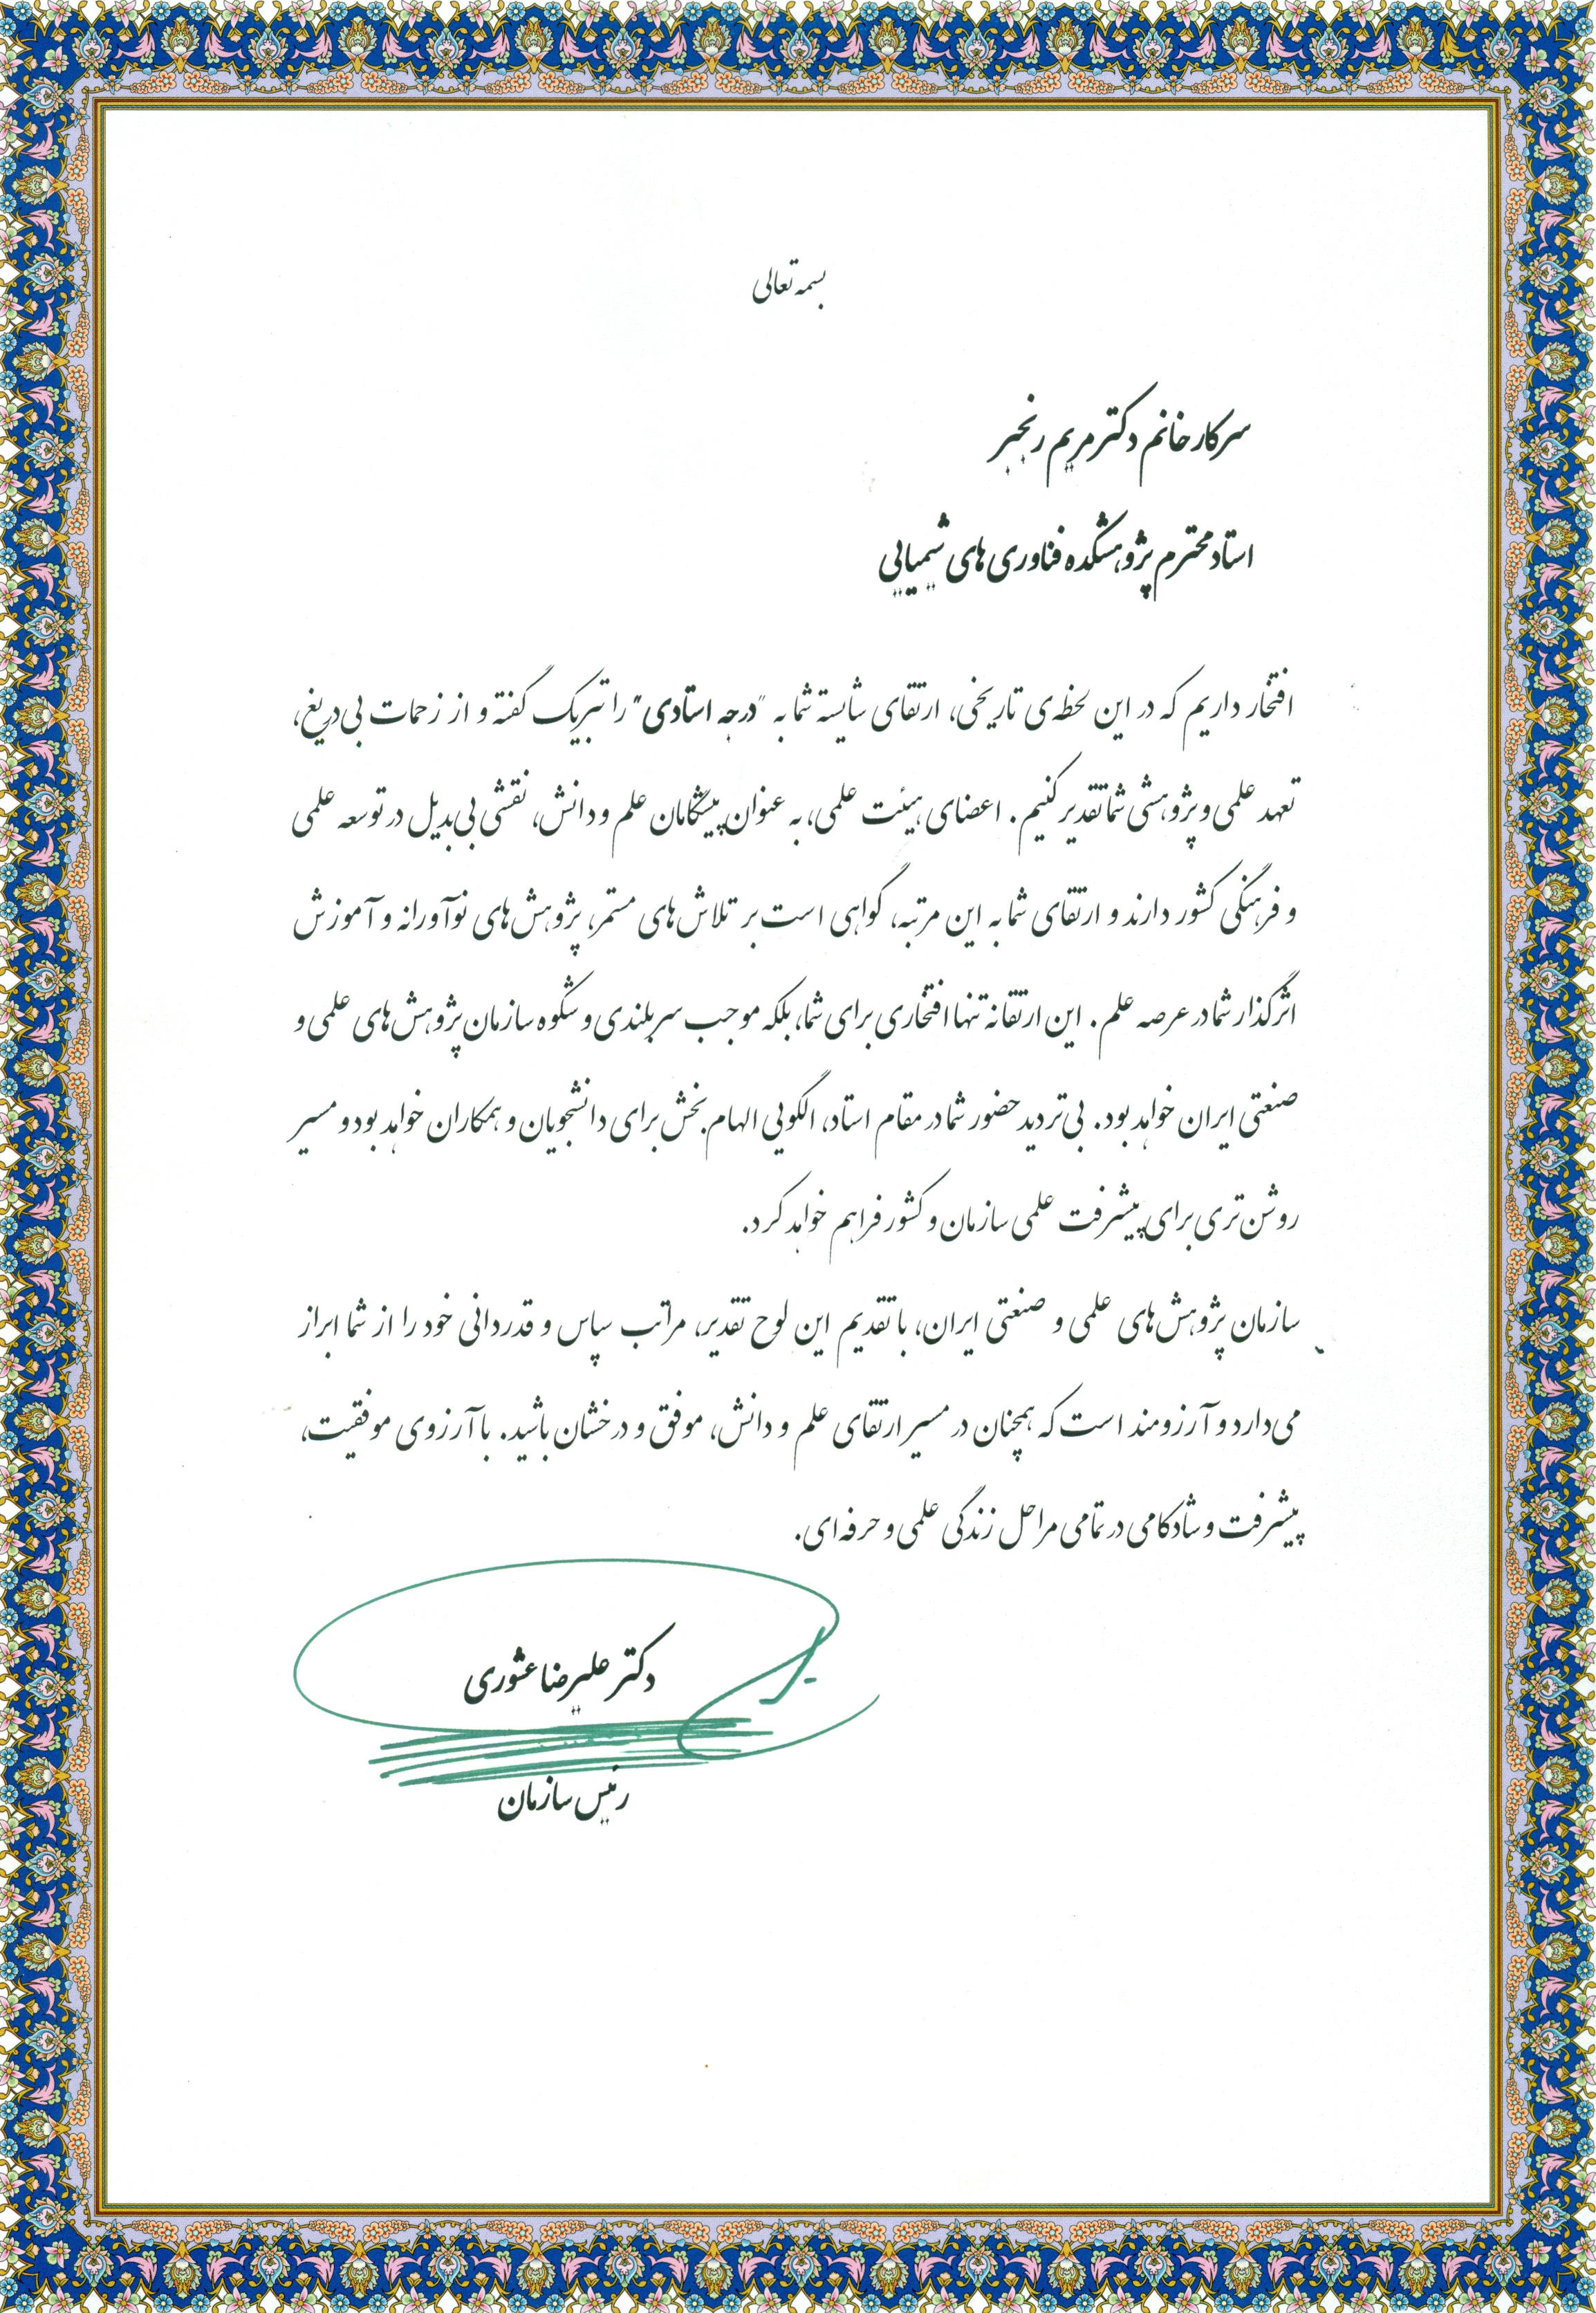 بسمه تعالی
سرکار خانم دکتر مریم رنجبر
استاد محترم پژوهشکده فناوری های شیمیایی
افتخار داریم که در این لحظه‌ی تاریخی، ارتقای شایسته شما به "درجه استادی" را تبریک گفته و از زحمات بی‌دریغ،
تعهد علمی و پژوهشی شما تقدیر کنیم. اعضای هیئت علمی، به عنوان پیشگامان علم و دانش، نقشی بی‌بدیل در توسعه علمی
و فرهنگی کشور دارند و ارتقای شما به این مرتبه، گواهی است بر تلاش‌های مستمر، پژوهش‌های نوآورانه و آموزش
اثرگذار شما در عرصه علم. این ارتقا نه تنها افتخاری برای شما، بلکه موجب سربلندی و شکوه سازمان پژوهش‌های علمی و
صنعتی ایران خواهد بود. بی‌تردید حضور شما در مقام استاد، الگویی الهام‌بخش برای دانشجویان و همکاران خواهد بود و مسیر
روشن‌تری برای پیشرفت علمی سازمان و کشور فراهم خواهد کرد.
سازمان پژوهش‌های علمی و صنعتی ایران، با تقدیم این لوح تقدیر، مراتب سپاس و قدردانی خود را از شما ابراز
می‌دارد و آرزومند است که همچنان در مسیر ارتقای علم و دانش، موفق و درخشان باشید. با آرزوی موفقیت،
پیشرفت و شادکامی در تمامی مراحل زندگی علمی و حرفه‌ای.
دکتر علیرضا عشوری
رئیس سازمان